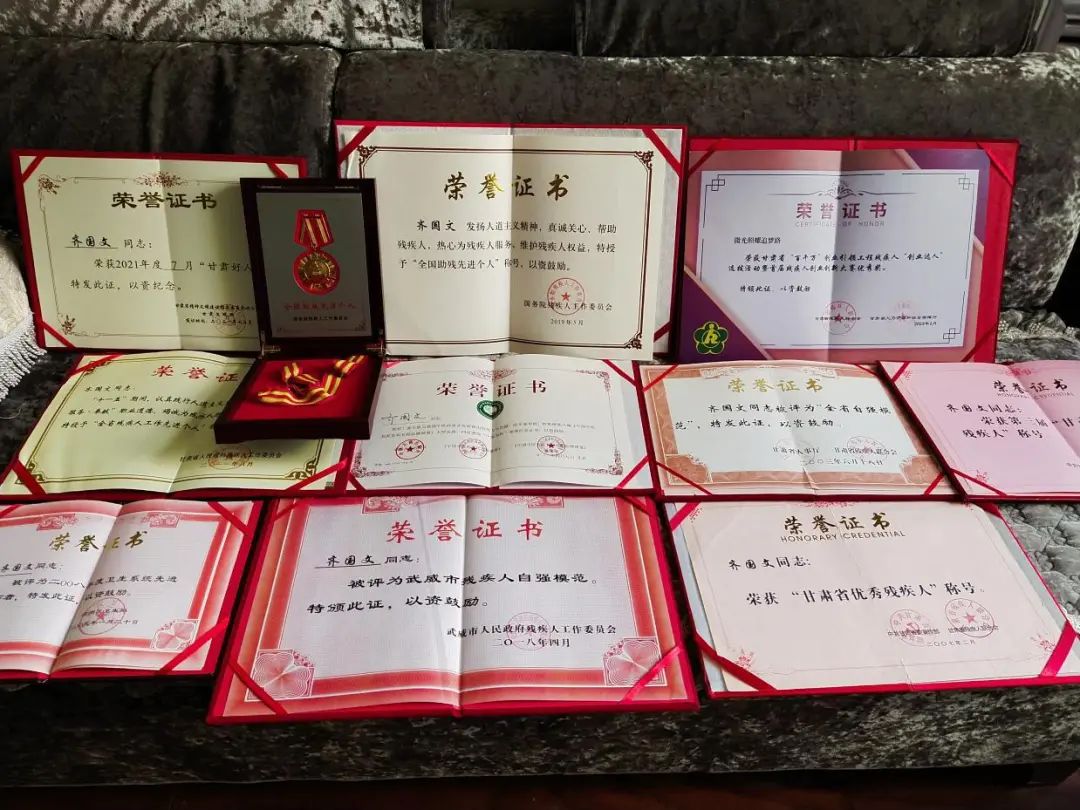 荣誉证书
齐国文 同志：
荣获2021年度 7 月“甘肃好人
特发此证，以资纪念。
荣誉证书
齐国文 发扬人道主义精神，真诚关心、帮助
残疾人，热心为残疾人服务，维护残疾人权益，特授
予“全国助残先进个人”称号，以资鼓励。
国务院残疾人工作委员会
2019年5月
荣誉证书
CERTIFICATE OF HONOR
荣获甘肃省“百千万”创业引领工程残疾人“创业达人”
选拔活动暨首届残疾人创业创新大赛优秀奖。
特颁此证，以资鼓励
全国助残先进个人
国务院残疾人工作委员会
荣誉证
齐国文同志：
荣誉证书
齐国文
荣誉证书
齐国文同志被评为“全省自强模
范”，特发此证，以资鼓励。
甘肃省人事厅 甘肃省残疾人联合会
二〇〇三年六月十八日
荣誉证书
齐国文同志：
荣获第三届“甘
残疾人”称号
荣誉证书
齐国文 同志：
被评为二00八
卫生系统先进
者，特发此证，以资鼓励。
荣誉证书
齐国文 同志：
被评为武威市残疾人自强模范。
特颁此证，以资鼓励。
武威市人民政府残疾人工作委员会
二〇一八年四月
荣誉证书
HONORARY CREDENTIAL
齐国文同志：
荣获“甘肃省优秀残疾人”称号。
二〇〇七年二月